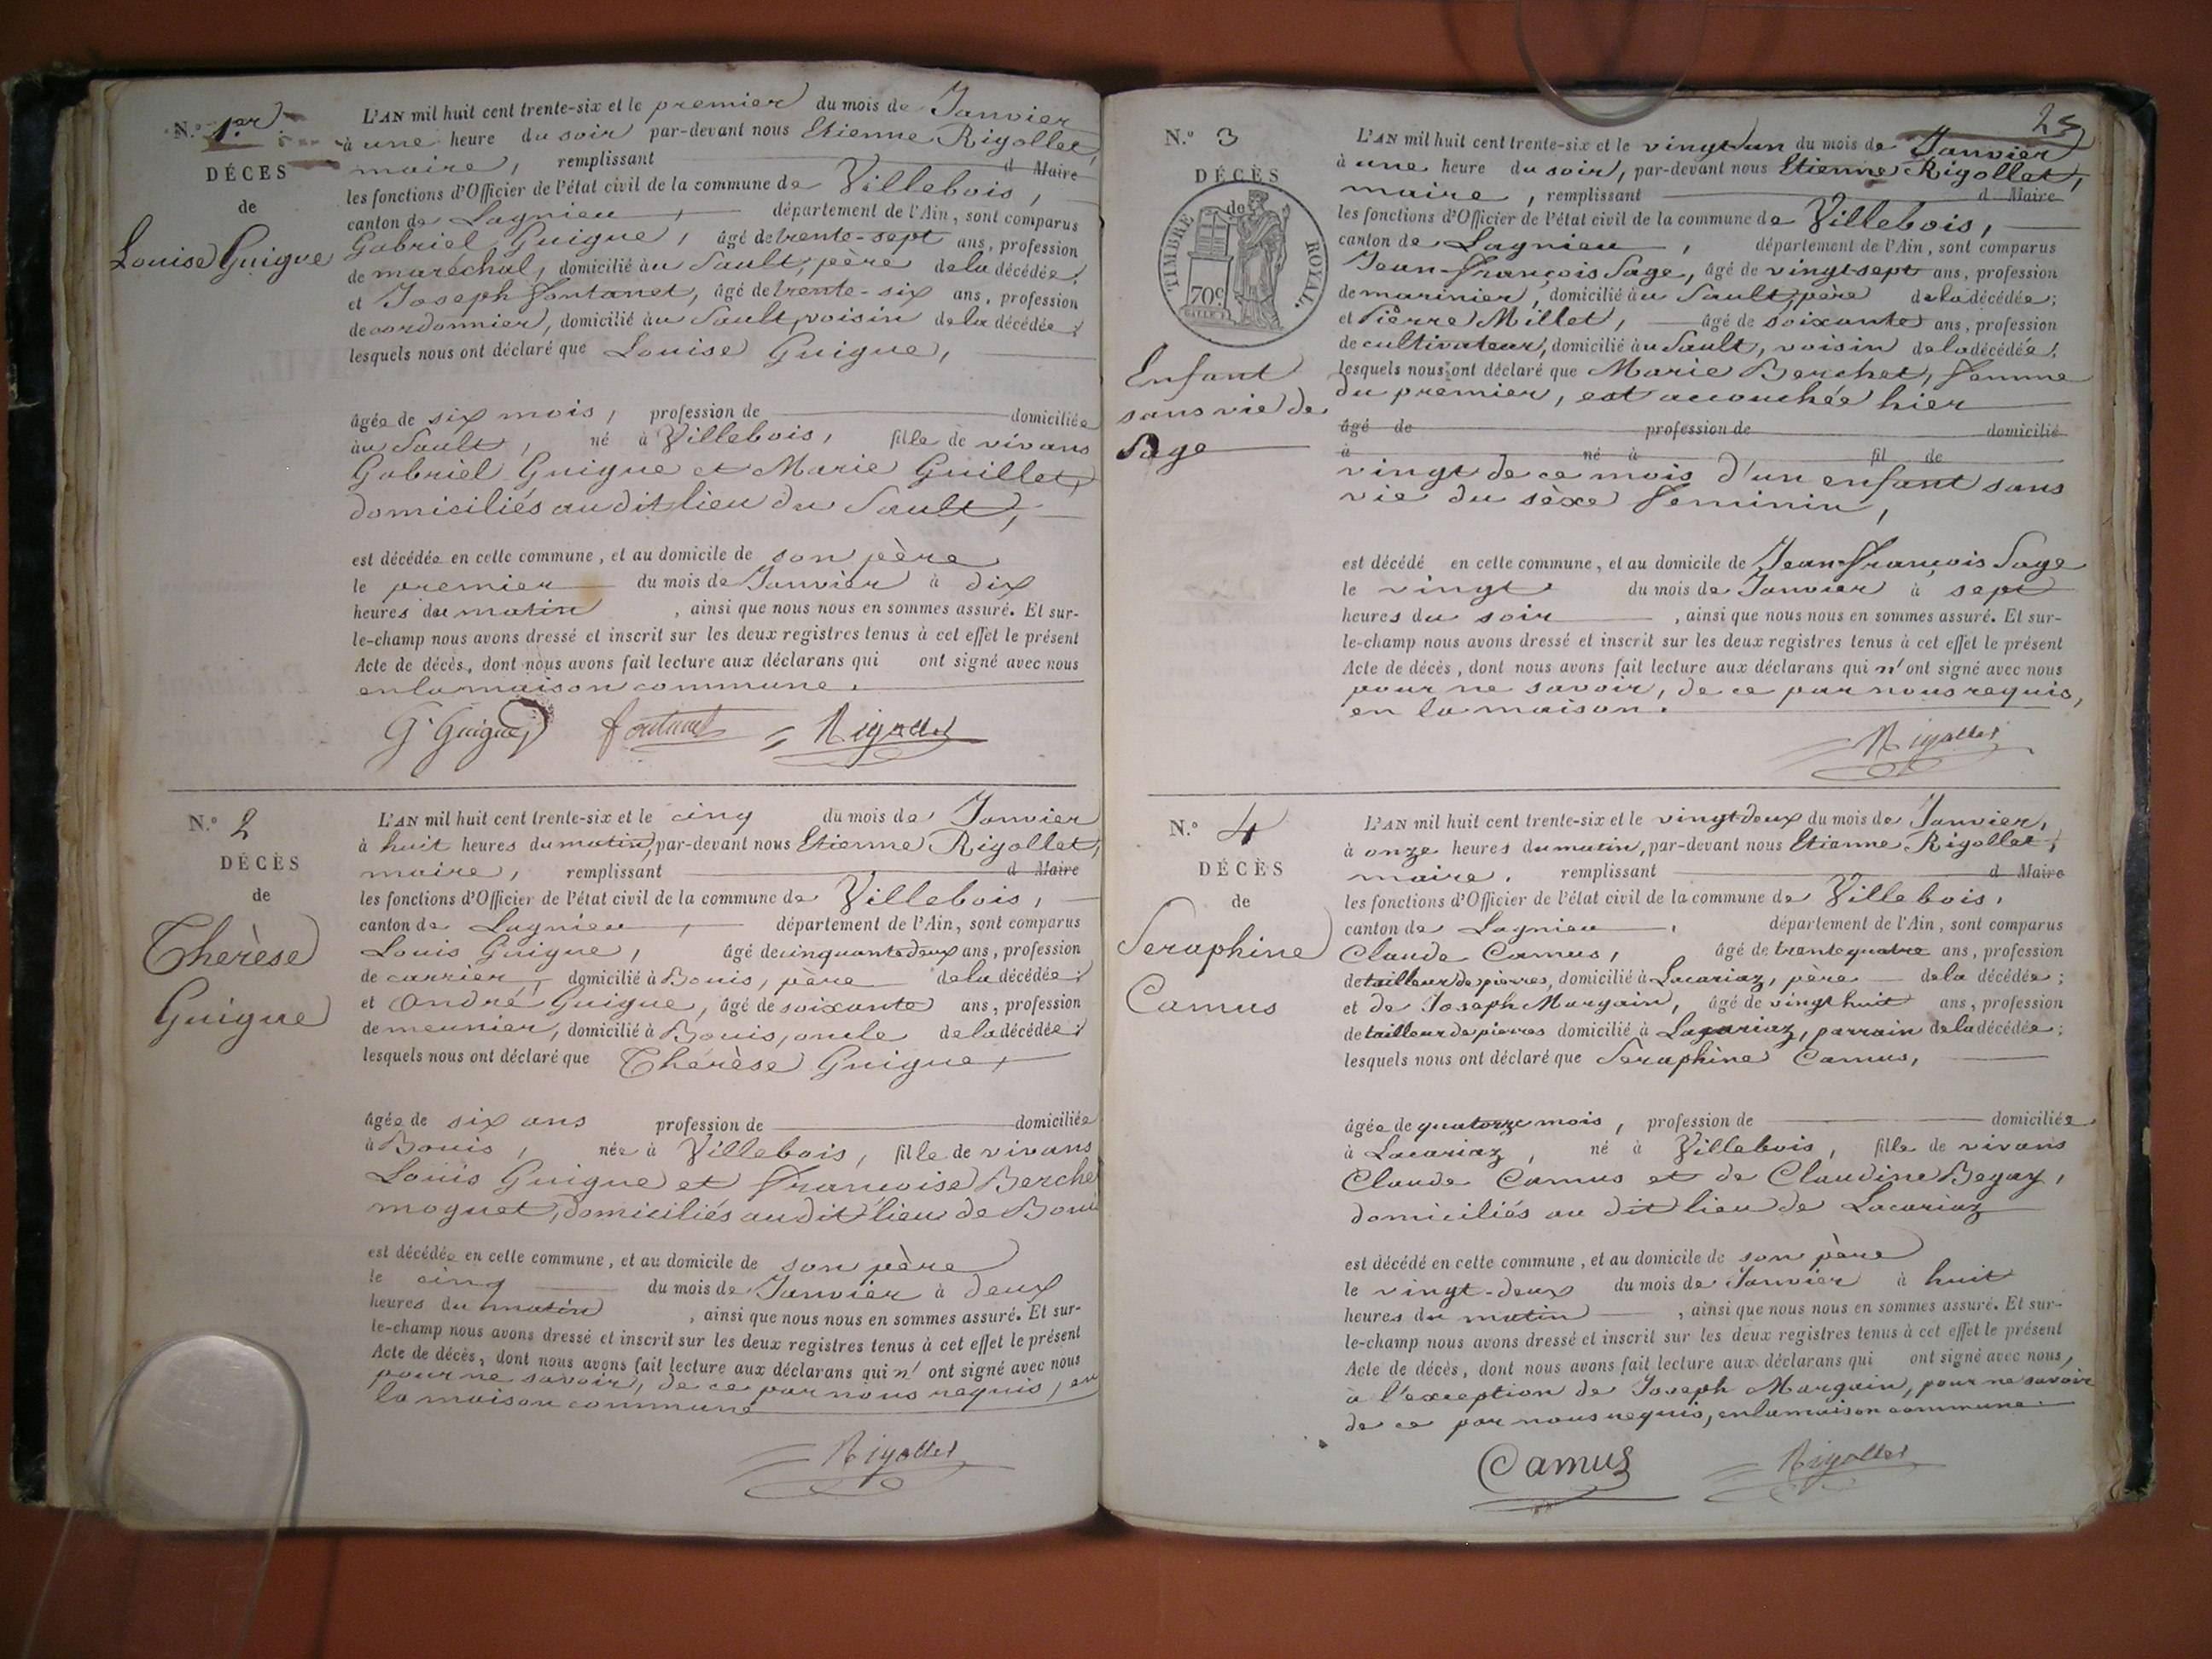 N.° 1.er
DÉCÈS
de
Louise Guigue
L'AN mil huit cent trente-six et le premier du mois de Janvier
à une heure du soir par-devant nous Etienne Rigollet,
maire, remplissant d Maire
les fonctions d'Officier de l'état civil de la commune de Villebois,
canton de Lagnieu, département de l'Ain, sont comparus
Gabriel Guigue, âgé de trente-sept ans, profession
de maréchal, domicilié au Sault, père de la décédée;
et Joseph Fontanet, âgé de trente-six ans, profession
de cordonnier, domicilié au Sault, voisin de la décédée;
lesquels nous ont déclaré que Louise Guigue,
âgée de six mois, profession de domiciliée
au Sault, né à Villebois, fille de vivans
Gabriel Guigue et Marie Guillet,
domiciliés audit lieu du Sault,
est décédée en cette commune, et au domicile de son père
le premier du mois de Janvier à dix
heures du matin, ainsi que nous nous en sommes assuré. Et sur-
le-champ nous avons dressé et inscrit sur les deux registres tenus à cet effet le présent
Acte de décès, dont nous avons fait lecture aux déclarans qui ont signé avec nous
en la maison commune.
G. Guigue Fontanet Rigollet
N.° 2
DÉCÈS
de
Thérèse
Guigue
L'AN mil huit cent trente-six et le cinq du mois de Janvier
à huit heures du matin, par-devant nous Etienne Rigollet,
maire, remplissant d Maire
les fonctions d'Officier de l'état civil de la commune de Villebois,
canton de Lagnieu, département de l'Ain, sont comparus
Louis Guigue, âgé de cinquante deux ans, profession
de carrier, domicilié à Bouis, père de la décédée;
et André Guigue, âgé de soixante ans, profession
de meunier, domicilié à Bouis, oncle de la décédée;
lesquels nous ont déclaré que Thérèse Guigue,
âgée de six ans profession de domiciliée
à Bouis, née à Villebois, fille de vivans
Louis Guigue et Françoise Berche
moguet, domiciliés audit lieu de Bouis
est décédée en cette commune, et au domicile de son père
le cinq du mois de Janvier à deux
heures du matin, ainsi que nous nous en sommes assuré. Et sur-
le-champ nous avons dressé et inscrit sur les deux registres tenus à cet effet le présent
Acte de décès, dont nous avons fait lecture aux déclarans qui n'ont signé avec nous
pour ne savoir, de ce par nous requis, en
la maison commune
Rigollet
N.° 3
DÉCÈS
de
TIMBRE ROYAL.
70c
Enfant
sans vie de
Sage
L'AN mil huit cent trente-six et le vingt un du mois de Janvier
à une heure du soir, par-devant nous Etienne Rigollet,
maire, remplissant d Maire
les fonctions d'Officier de l'état civil de la commune de Villebois,
canton de Lagnieu, département de l'Ain, sont comparus
Jean-François Sage, âgé de vingt sept ans, profession
de marinier, domicilié au Sault, père de la décédée;
et Pierre Millet, âgé de soixante ans, profession
de cultivateur, domicilié au Sault, voisin de la décédée;
lesquels nous ont déclaré que Marie Berchet, femme
du premier, est accouchée hier
âgé de profession de domicilié
à né à fil de
vingt de ce mois d'un enfant sans
vie du sèxe féminin,
est décédé en cette commune, et au domicile de Jean-François Sage
le vingt du mois de Janvier à sept
heures du soir, ainsi que nous nous en sommes assuré. Et sur-
le-champ nous avons dressé et inscrit sur les deux registres tenus à cet effet le présent
Acte de décès, dont nous avons fait lecture aux déclarans qui n'ont signé avec nous
pour ne savoir, de ce par nous requis,
en la maison.
Rigollet
N.° 4
DÉCÈS
de
Seraphine
Camus
L'AN mil huit cent trente-six et le vingt deux du mois de Janvier,
à onze heures du matin, par-devant nous Etienne Rigollet,
maire. remplissant d Maire
les fonctions d'Officier de l'état civil de la commune de Villebois,
canton de Lagnieu, département de l'Ain, sont comparus
Claude Camus, âgé de trente quatre ans, profession
de tailleur de pierres, domicilié à Lacariaz, père de la décédée;
et de Joseph Margain, âgé de vingt huit ans, profession
de tailleur de pierres domicilié à Lacariaz, parrain de la décédée;
lesquels nous ont déclaré que Seraphine Camus,
âgée de quatorze mois, profession de domiciliée
à Lacariaz, né à Villebois, fille de vivans
Claude Camus et de Claudine Begay,
domiciliés au dit lieu de Lacariaz
est décédé en cette commune, et au domicile de son père
le vingt-deux du mois de Janvier à huit
heures du matin, ainsi que nous nous en sommes assuré. Et sur-
le-champ nous avons dressé et inscrit sur les deux registres tenus à cet effet le présent
Acte de décès, dont nous avons fait lecture aux déclarans qui ont signé avec nous,
à l'exception de Joseph Margain, pour ne savoir
de ce par nous requis, en la maison commune.
Camus Rigollet